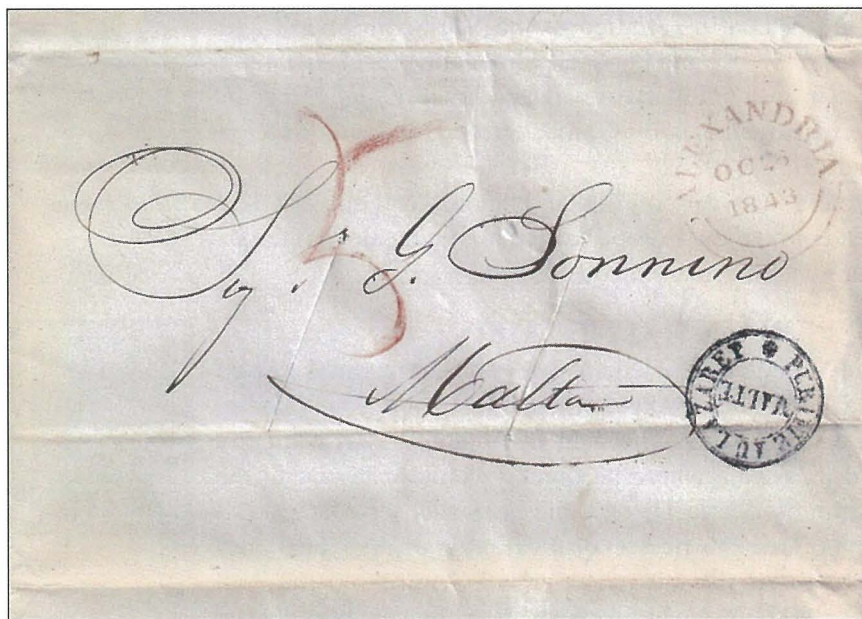 ALEXANDRIA
OC 26
1843
5
Sigr. G. Sonnino
Malta
PURIFIÉ AU LAZARET
MALTE